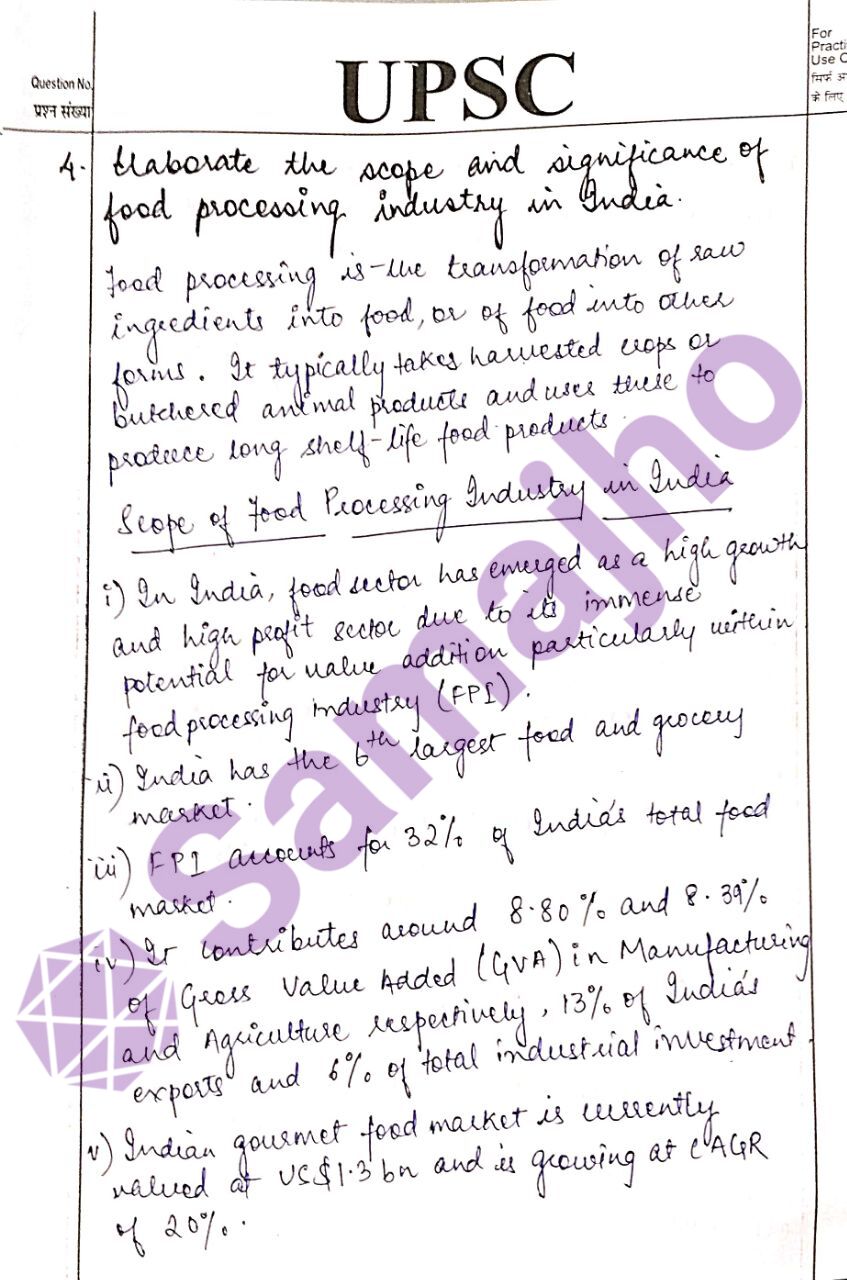 For
Practi
Use O
सिर्फ अ
के लिए
Question No.
प्रश्न संख्या
UPSC
4. Elaborate the scope and significance of
food processing industry in India.
Food processing is the transformation of raw
ingredients into food, or of food into other
forms. It typically takes harvested crops or
butchered animal products and uses these to
produce long shelf-life food products.
Scope of Food Processing Industry in India
i) In India, food sector has emerged as a high growth
and high profit sector due to its immense
potential for value addition particularly within
food processing industry (FPI).
ii) India has the 6th largest food and grocery
market.
iii) FPI accounts for 32% of India's total food
market.
iv) It contributes around 8.80% and 8.39%
of Gross Value Added (GVA) in Manufacturing
and Agriculture respectively, 13% of India's
exports and 6% of total industrial investment.
v) Indian gourmet food market is currently
valued at US$1.3 bn and is growing at CAGR
of 20%.
Samajho